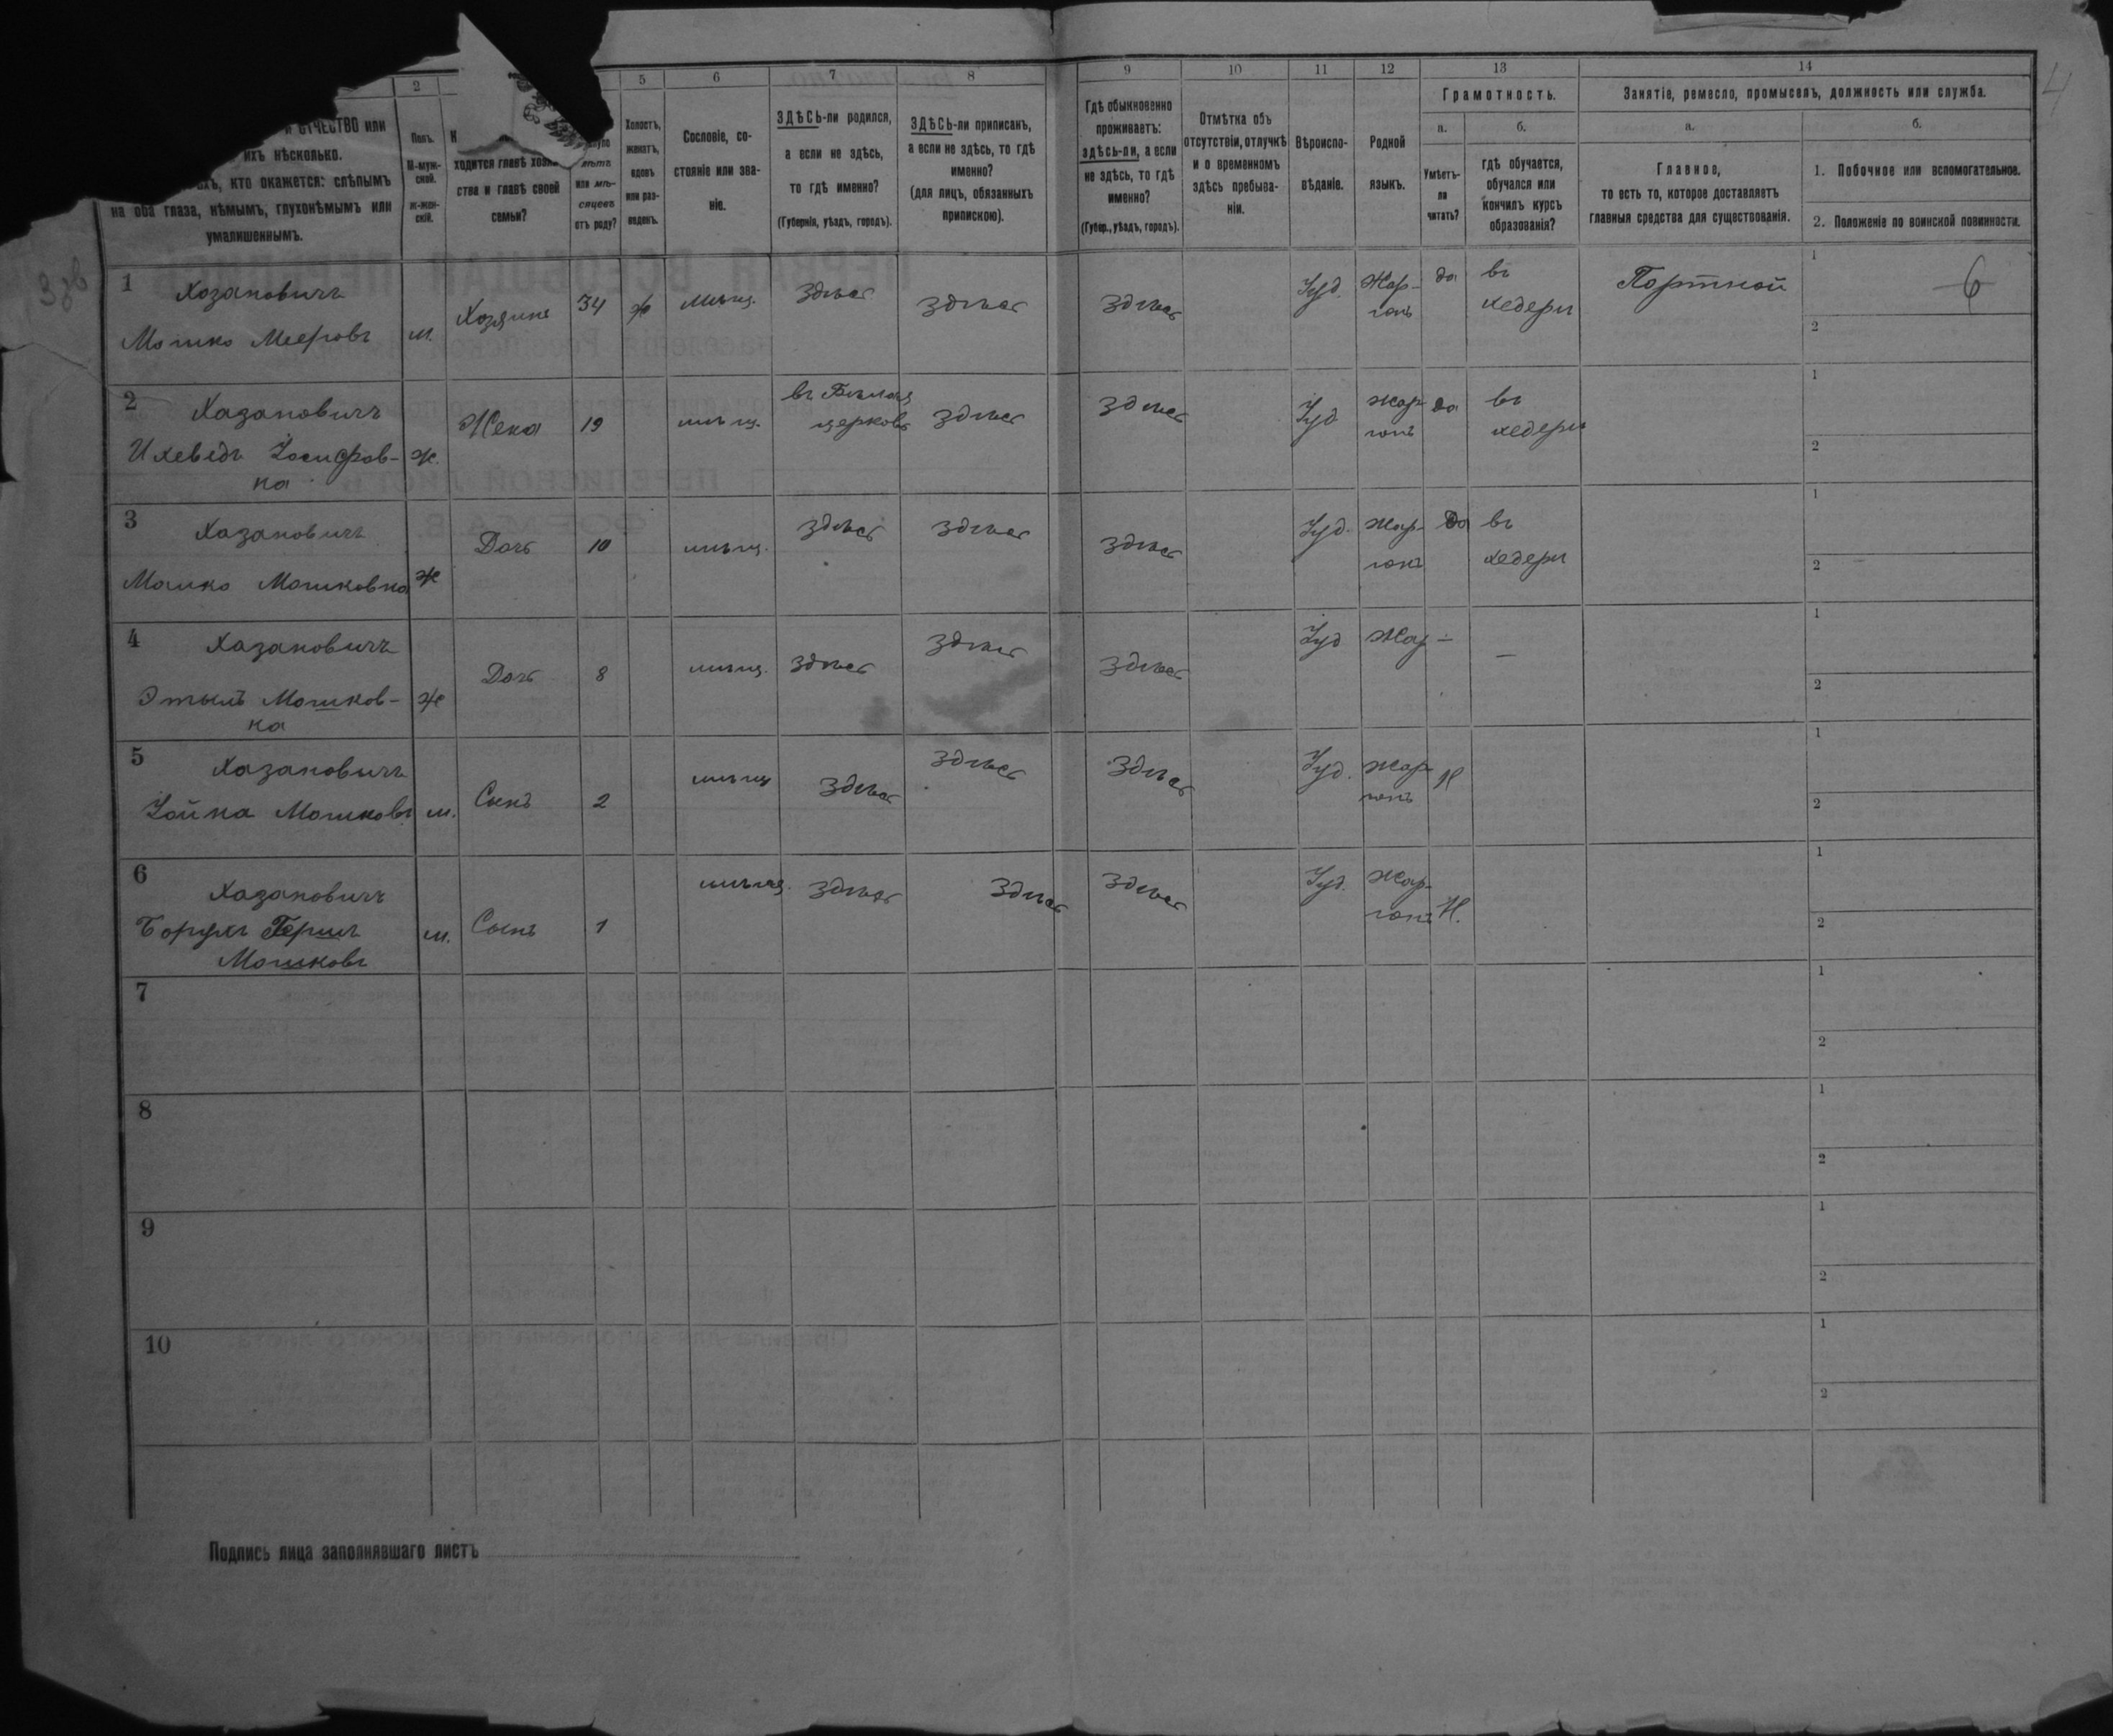 2 5 6 7 8 9 10 11 12 13 14
4
и ОТЧЕСТВО или
ихъ нѣсколько.
кто окажется: слѣпымъ
на оба глаза, нѣмымъ, глухонѣмымъ или
умалишеннымъ.
Полъ.
М-муж-
ской.
ж-жен-
скій.
ходится главѣ
ства и главѣ своей
семьи?
или мѣ-
сяцевъ
отъ роду?
Холостъ,
женатъ,
вдовъ
или раз-
веденъ.
Сословіе, со-
стояніе или зва-
ніе.
ЗДѢСЬ-ли родился,
а если не здѣсь,
то гдѣ именно?
(Губернія, уѣздъ, городъ).
ЗДѢСЬ-ли приписанъ,
а если не здѣсь, то гдѣ
именно?
(для лицъ, обязанныхъ
припискою).
Гдѣ обыкновенно
проживаетъ:
здѣсь-ли, а если
не здѣсь, то гдѣ
именно?
(Губер., уѣздъ, городъ).
Отмѣтка объ
отсутствіи, отлучкѣ
и о временномъ
здѣсь пребыва-
ніи.
Вѣроиспо-
вѣданіе.
Родной
языкъ.
Грамотность.
а.
б.
Умѣетъ-
ли
читать?
гдѣ обучается,
обучался или
кончилъ курсъ
образованія?
Занятіе, ремесло, промыселъ, должность или служба.
а.
б.
Главное,
то есть то, которое доставляетъ
главныя средства для существованія.
1. Побочное или вспомогательное.
2. Положеніе по воинской повинности.
1
Хозановичъ
Мошко Мееровъ
м.
Хозяинъ
34
ж
мѣщ.
здѣсь
здѣсь
здѣсь
Іуд.
Жар-
гонъ
да
въ
хедери
Портной
1
6
2
2
Хазановичъ
Ихеведъ Іосифов-
на
ж.
Жена
19
мѣщ.
въ Бѣлая
церковь
здѣсь
здѣсь
Іуд
жар
гонъ
да
въ
хедери
1
2
3
Хазановичъ
Мошковна
ж
Дочь
10
мѣщ.
здѣсь
здѣсь
здѣсь
Іуд.
жар-
гонъ
да
въ
хедери
1
2
4
Хазановичъ
Мошков-
на
ж
Дочь
8
мѣщ.
здѣсь
здѣсь
здѣсь
Іуд
жар
—
—
1
2
5
Хазановичъ
Мошковъ
м.
Сынъ
2
мѣщ
здѣсь
здѣсь
здѣсь
Іуд.
жар
гонъ
Н
1
2
6
Хазановичъ
Борухъ Гершъ
Мошковъ
м.
Сынъ
1
мѣщ.
здѣсь
здѣсь
здѣсь
Іуд.
жар-
гонъ
Н.
1
2
7
1
2
8
1
2
9
1
2
10
1
2
Подпись лица заполнявшаго листъ